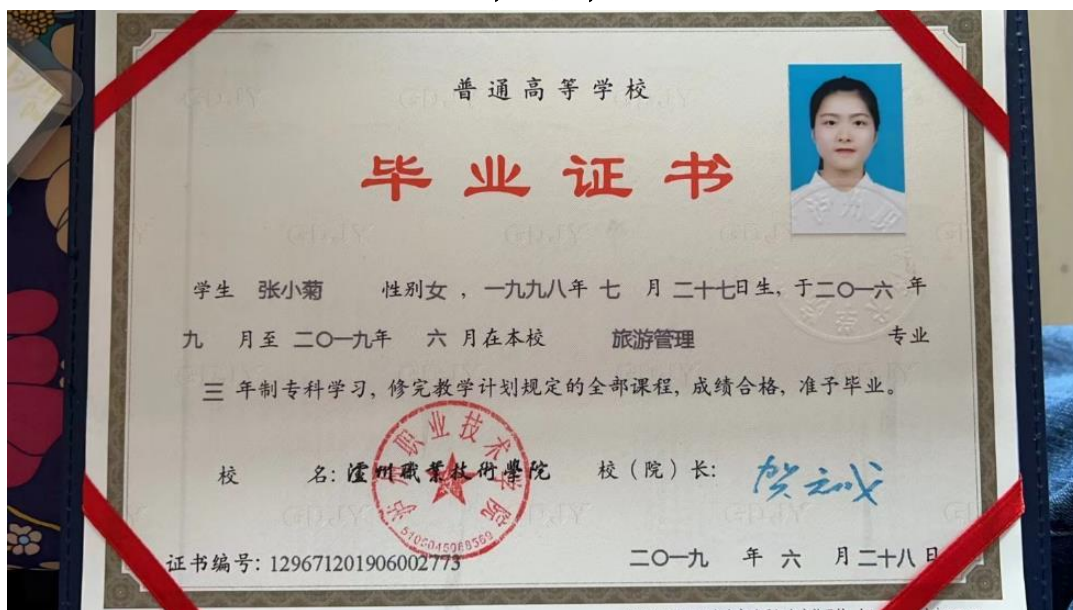 普通高等学校
毕业证书
学生 张小菊 性别女，一九九八年 七 月 二十七日生，于二〇一六 年
九 月至 二〇一九年 六 月在本校 旅游管理 专业
三 年制专科学习，修完教学计划规定的全部课程，成绩合格，准予毕业。
校 名：瀘州職業技術學院 校（院）长：贺元成
泸州职业技术学院
证书编号：129671201906002773 二〇一九 年 六 月二十八日